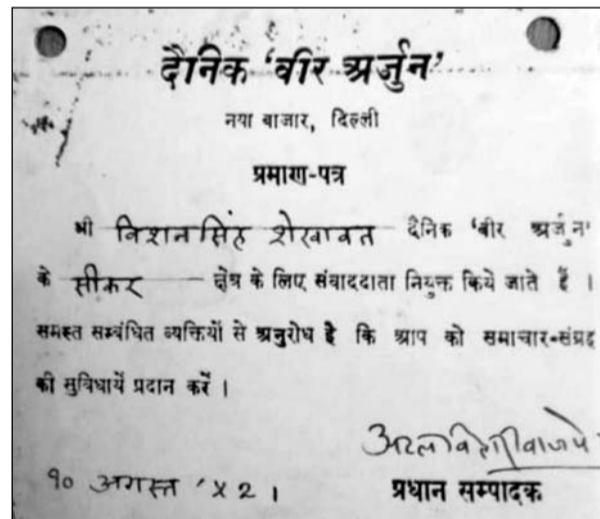 दैनिक 'वीर अर्जुन'
नया बाजार, दिल्ली
प्रमाण-पत्र
श्री विशनसिंह शेखावत दैनिक 'वीर अर्जुन'
के सीकर क्षेत्र के लिए संवाददाता नियुक्त किये जाते हैं ।
समस्त सम्बंधित व्यक्तियों से अनुरोध है कि आप को समाचार-संग्रह
की सुविधायें प्रदान करें ।
अटल विहारी वाजपे
१० अगस्त '५२ ।
प्रधान सम्पादक